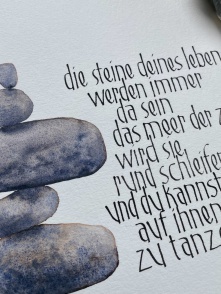 die steine deines leben
werden immer
da sein
das meer der z
wird sie
rund schleifen
und du kannst
auf ihnen
zu tanze